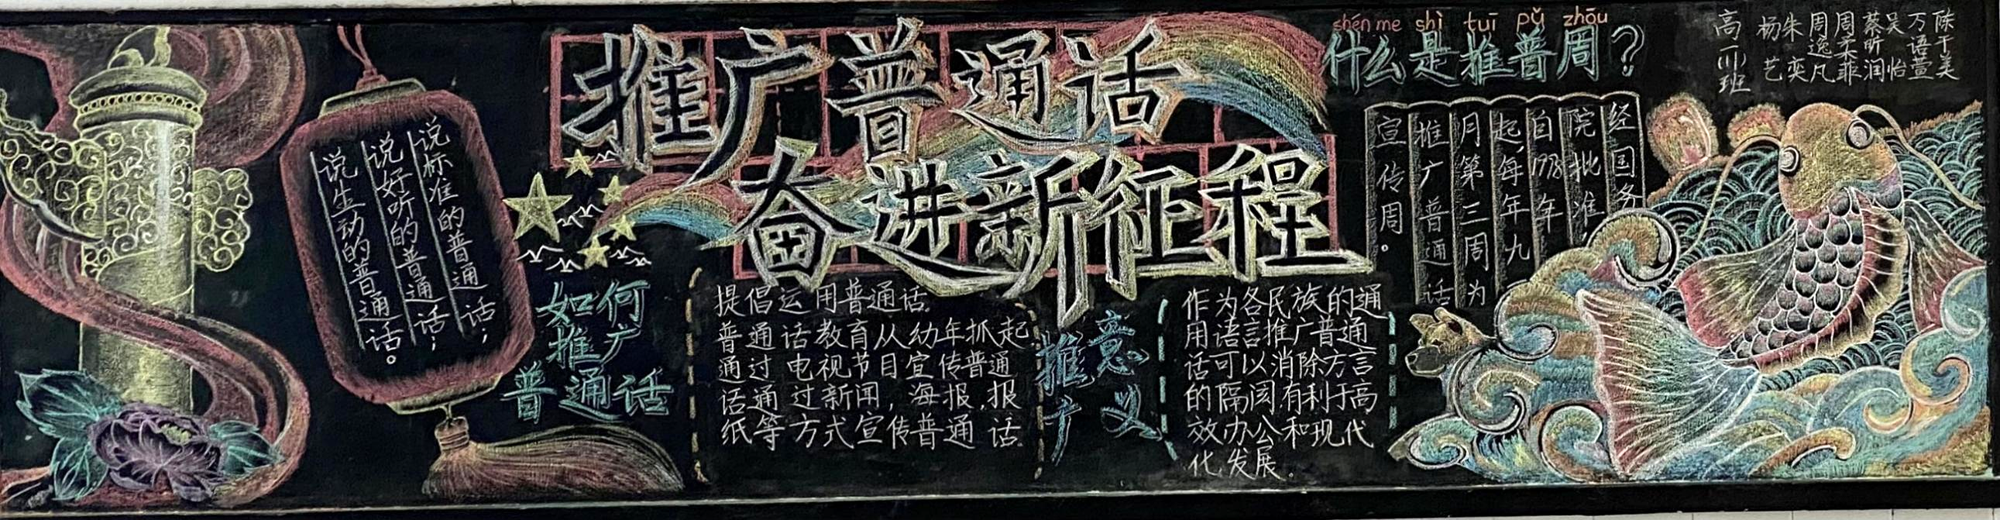 推广普通话
奋进新征程
说标准的普通话；
说好听的普通话；
说生动的普通话。
如何
推广
普通话
提倡运用普通话.
普通话教育从幼年抓起
通过电视节目宣传普通
话通过新闻，海报，报
纸等方式宣传普通话.
推广
意义
作为各民族的通
用语言推广普通
话可以消除方言
的隔阂有利于高
效办公和现代
化发展。
shén me shì tuī pǔ zhōu
什么是推普周？
经国务
院批准，
自1998年
起，每年九
月第三周为
推广普通话
宣传周。
高一（1）班
陈于美
万语萱
吴怡
蔡昕润
周柔菲
周逸凡
朱奕
杨艺